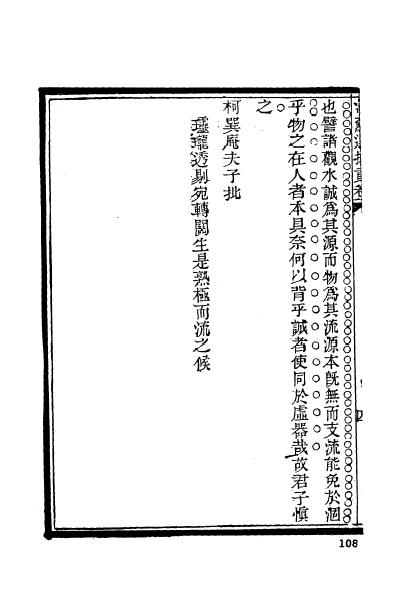 也譬諸觀水誠爲其源而物爲其流源本旣無而支流能免於涸
乎物之在人者本具奈何以背乎誠者使同於虛器哉故君子愼
之
柯巽庵夫子批
瓏透剔宛轉關生是熟極而流之候
108